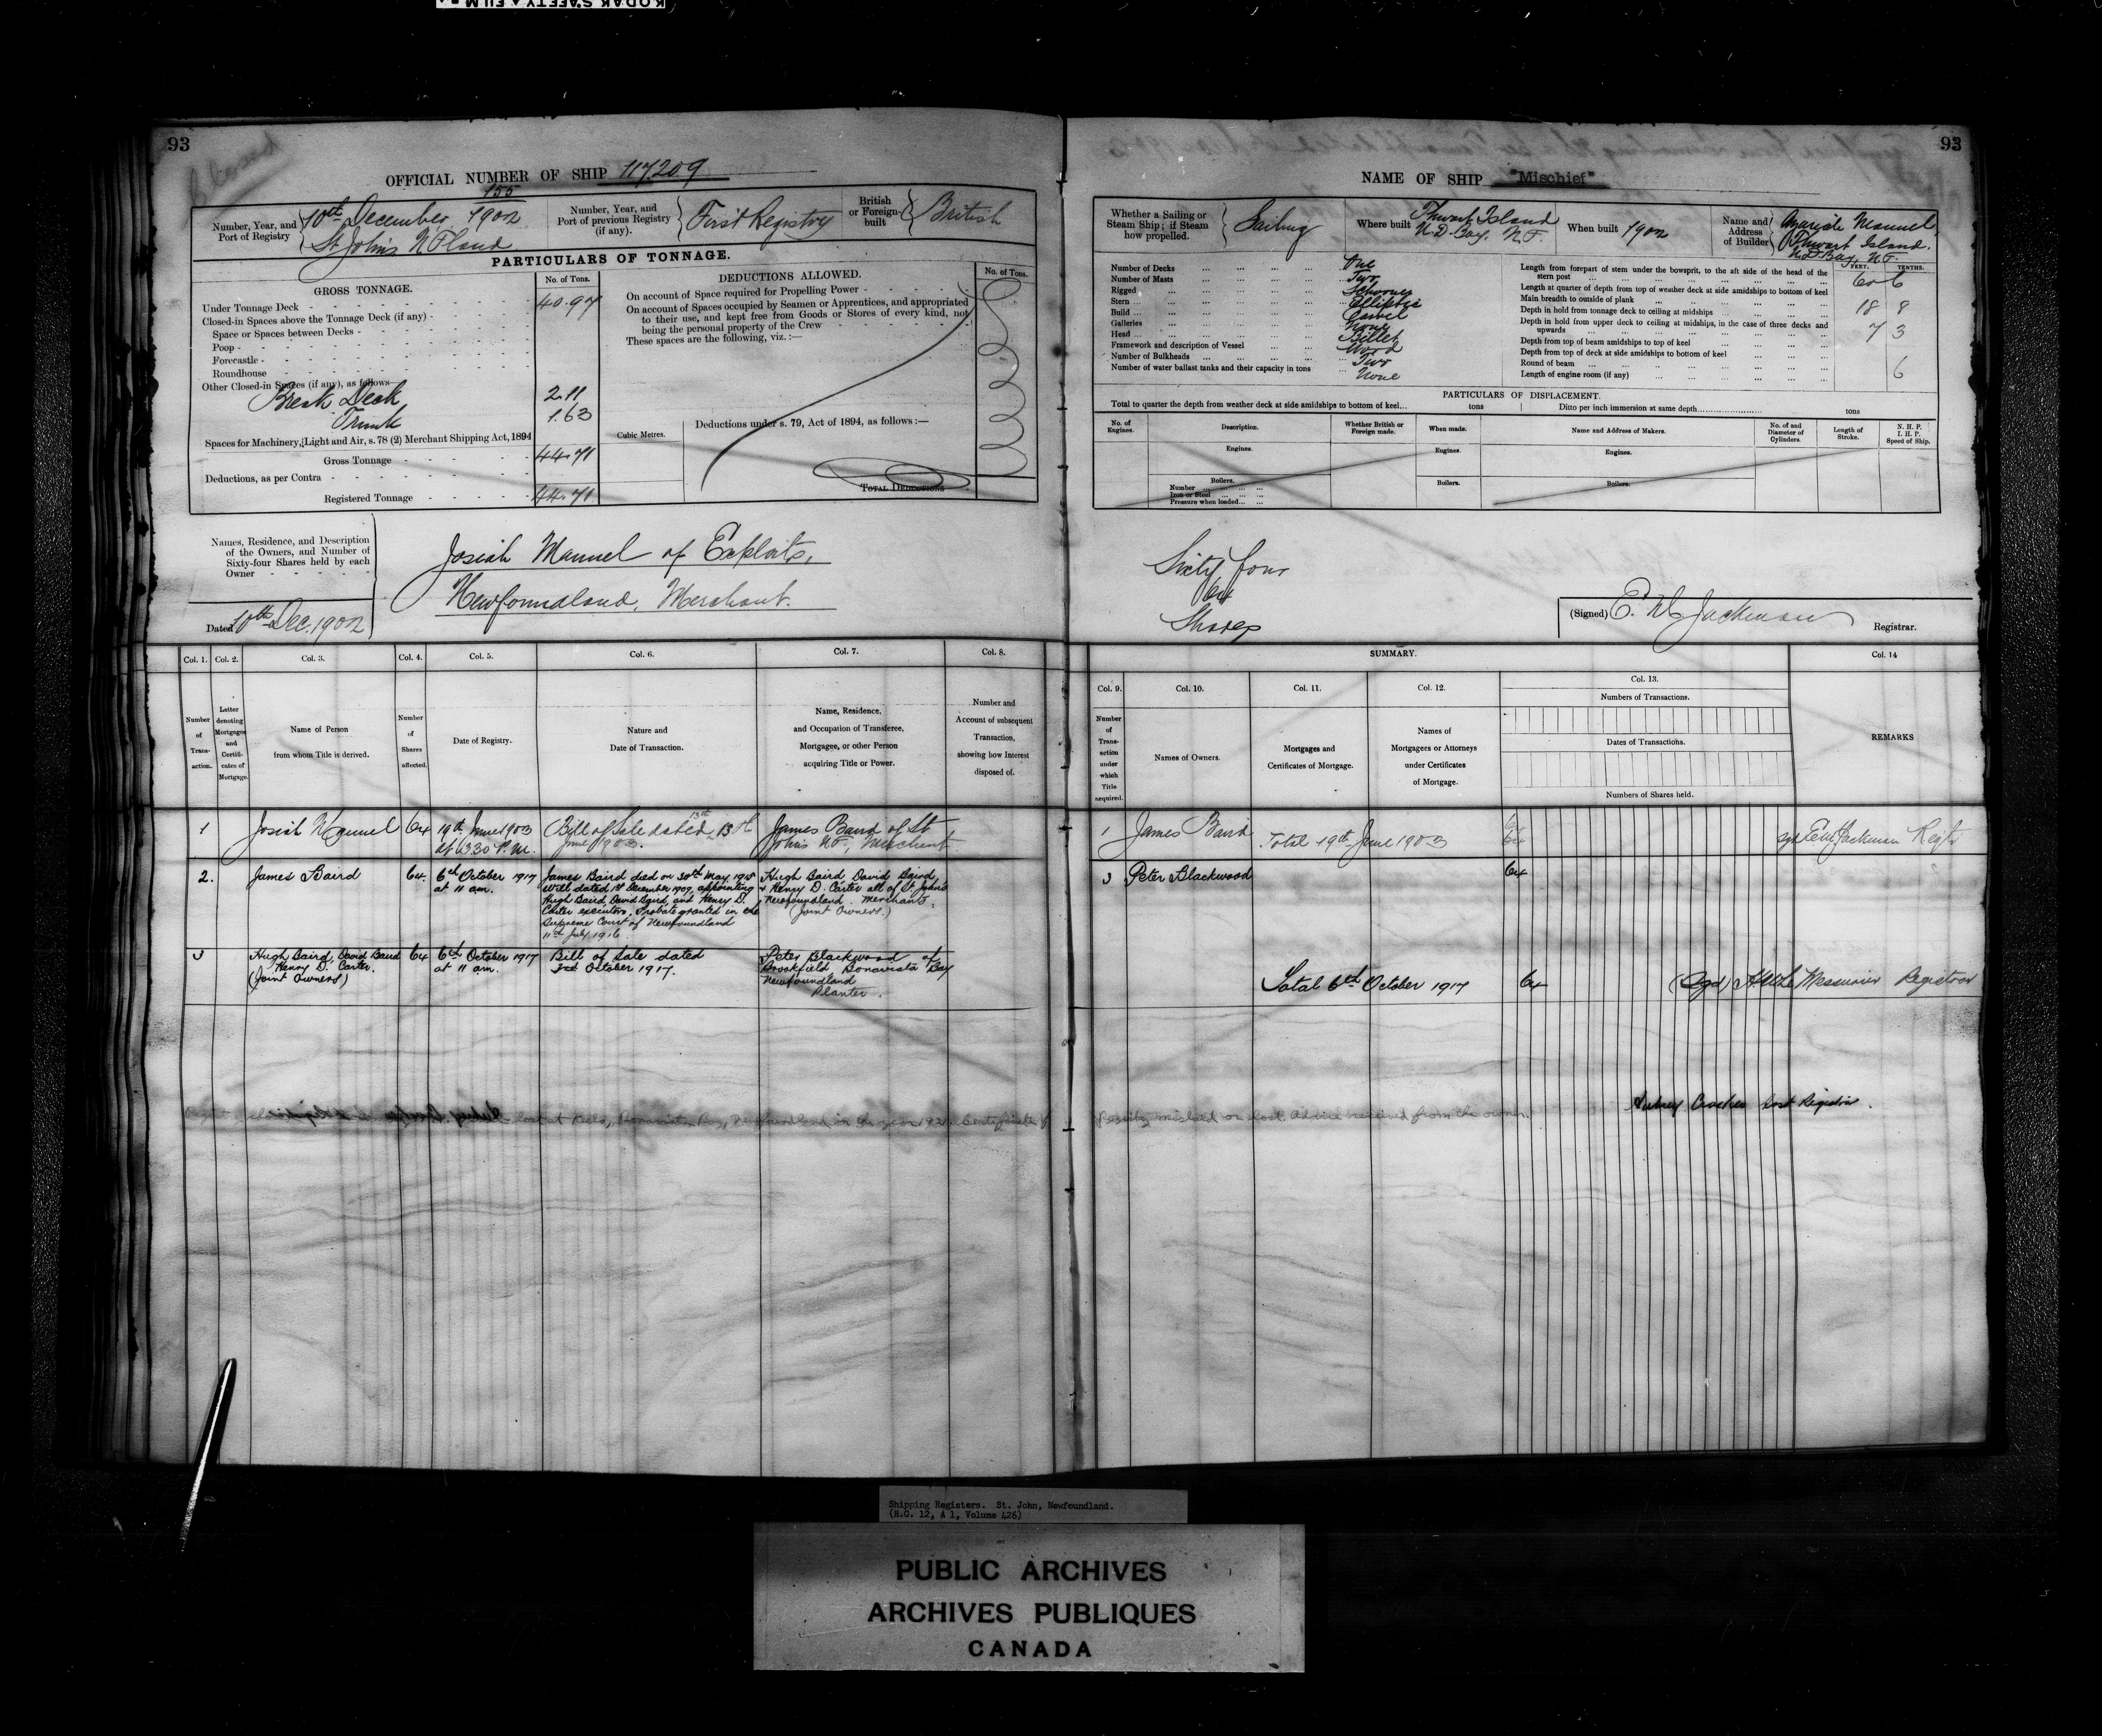 KODAK SAFETY FILM
93
Closed
OFFICIAL NUMBER OF SHIP 117,209
Number, Year, and Port of Registry
155
10th December, 1902
St John's N F land
Number, Year, and Port of previous Registry (if any).
First Registry
British or Foreign built
British
PARTICULARS OF TONNAGE.
GROSS TONNAGE.
No. of Tons.
Under Tonnage Deck 40.97
Closed-in Spaces above the Tonnage Deck (if any)
Space or Spaces between Decks
Poop
Forecastle
Roundhouse
Other Closed-in Spaces (if any), as follows
Break Deck 2.11
Trunk 1.63
Spaces for Machinery, Light and Air, s. 78 (2) Merchant Shipping Act, 1894
Gross Tonnage 44.71
Deductions, as per Contra
Registered Tonnage 44.71
DEDUCTIONS ALLOWED.
No. of Tons.
On account of Space required for Propelling Power
On account of Spaces occupied by Seamen or Apprentices, and appropriated
to their use, and kept free from Goods or Stores of every kind, not
being the personal property of the Crew
These spaces are the following, viz. :—
Cubic Metres.
Deductions under s. 79, Act of 1894, as follows :—
TOTAL DEDUCTIONS
Names, Residence, and Description
of the Owners, and Number of
Sixty-four Shares held by each
Owner
Dated 10th Dec. 1902
Josiah Manuel of Exploits,
Newfoundland, Merchant.
Col. 1. Col. 2. Col. 3. Col. 4. Col. 5. Col. 6. Col. 7. Col. 8.
Number of Transaction.
Letter denoting Mortgages and Certificates of Mortgage.
Name of Person from whom Title is derived.
Number of Shares affected.
Date of Registry.
Nature and Date of Transaction.
Name, Residence, and Occupation of Transferee, Mortgagee, or other Person acquiring Title or Power.
Number and Account of subsequent Transaction, showing how Interest disposed of.
1
Josiah Manuel
64
19th June 1903
at 3.30 P.M.
Bill of Sale dated 13th
June 1903.
James Baird of St
John's N.F., Merchant
2.
James Baird
64
6th October 1917
at 11 am.
James Baird died on 30th May 1915
Will dated 1st December 1909, appointing
Hugh Baird, David Baird, and Henry D.
Carter executors. Probate granted in the
Supreme Court of Newfoundland
11th July 1916
Hugh Baird David Baird
& Henry D. Carter all of St John's
Newfoundland. Merchants.
(Joint Owners.)
3
Hugh Baird, David Baird
Henry D. Carter.
(Joint Owners)
64
6th October 1917
at 11 am.
Bill of Sale dated
3rd October 1917.
Peter Blackwood of
Brookfield Bonavista Bay
Newfoundland
Planter.
lost at Keels, Bonavista Bay, Newfoundland in the year 192 Certificate of
93
NAME OF SHIP "Mischief"
Whether a Sailing or Steam Ship; if Steam how propelled.
Sailing
Where built
Thwart Island
N.D. Bay. N.F.
When built 1902
Name and Address of Builder
Manuel,
Thwart Island.
N.D. Bay, N.F.
Number of Decks One
Number of Masts Two
Rigged Schooner
Stern Elliptic
Build Carvel
Galleries None
Head Billet
Framework and description of Vessel Wood
Number of Bulkheads Two
Number of water ballast tanks and their capacity in tons None
FEET. TENTHS.
Length from forepart of stem under the bowsprit, to the aft side of the head of the
stern post 60 6
Length at quarter of depth from top of weather deck at side amidships to bottom of keel
Main breadth to outside of plank 18 8
Depth in hold from tonnage deck to ceiling at midships 7 3
Depth in hold from upper deck to ceiling at midships, in the case of three decks and
upwards
Depth from top of beam amidships to top of keel
Depth from top of deck at side amidships to bottom of keel
Round of beam 6
Length of engine room (if any)
PARTICULARS OF DISPLACEMENT.
Total to quarter the depth from weather deck at side amidships to bottom of keel... tons
Ditto per inch immersion at same depth tons
No. of Engines.
Description.
Whether British or Foreign made.
When made.
Name and Address of Makers.
No. of and Diameter of Cylinders.
Length of Stroke.
N. H. P.
I. H. P.
Speed of Ship.
Engines. Engines. Engines.
Boilers. Boilers. Boilers.
Number
Iron or Steel
Pressure when loaded
Sixty four
64
Shares
(Signed) Jackman
Registrar.
SUMMARY.
Col. 9. Col. 10. Col. 11. Col. 12. Col. 13. Col. 14
Number of Transaction under which Title acquired.
Names of Owners.
Mortgages and Certificates of Mortgage.
Names of Mortgagees or Attorneys under Certificates of Mortgage.
Numbers of Transactions.
Dates of Transactions.
Numbers of Shares held.
REMARKS
1 James Baird
Total 19th June 1903
64
sgd Jackman Regtr
3 Peter Blackwood
64
Total 6th October 1917
64
(Sgd) Messurier Registrar
Registry mislaid or lost. Advice received from the owner.
Registrar.
Shipping Registers. St. John, Newfoundland.
(R.G. 12, A 1, Volume 426)
PUBLIC ARCHIVES
ARCHIVES PUBLIQUES
CANADA